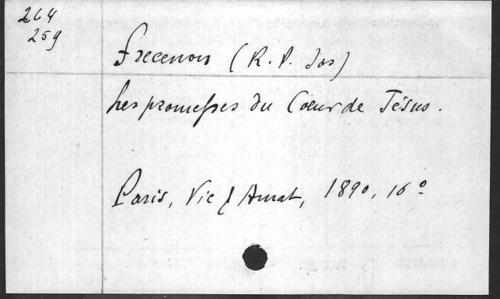 264
259
Frecenon (R. P. Jos)
Les promesses du Cœur de Jésus.
Paris, Vic & Amat, 1890, 16º